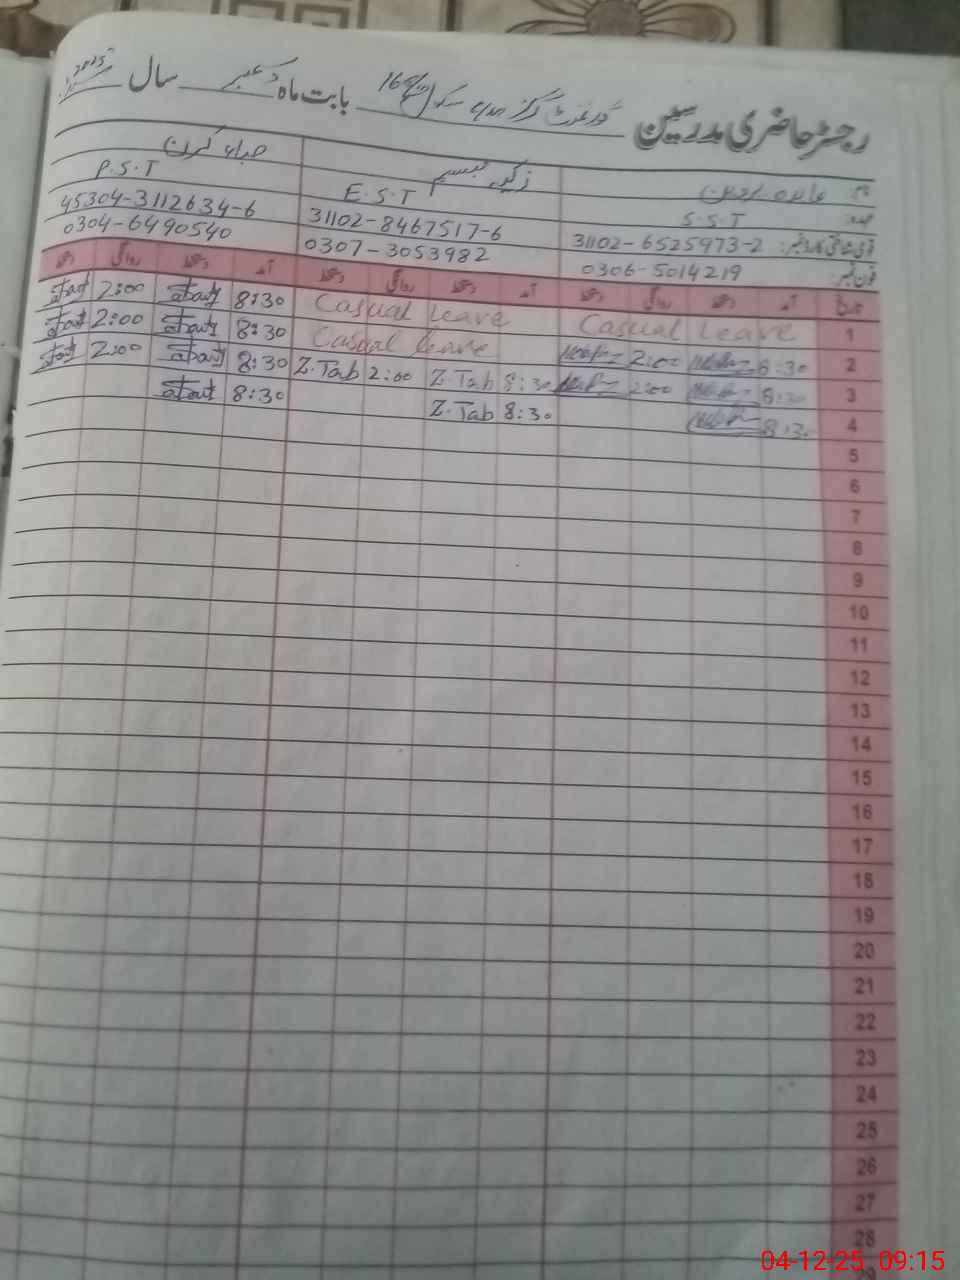 رجسٹر حاضری مدرسین گورنمنٹ گرلز سکول بابت ماہ دسمبر سال 2025
نام: زکیہ تبسم صباء کرن
عہدہ: S.S.T E.S.T P.S.T
قومی شناختی کارڈ نمبر: 31102-6525973-2 31102-8467517-6 45304-3112634-6
فون نمبر: 0306-5014219 0307-3053982 0304-6490540
تاریخ آمد دستخط روانگی دستخط آمد دستخط روانگی دستخط آمد دستخط روانگی دستخط
1 Casual Leave Casual Leave 8:30 2:00
2 8:30 2:00 Casual leave 8:30 2:00
3 8:30 2:00 8:30 Z.Tab 2:00 Z.Tab 8:30 2:00
4 8:30 8:30 Z.Tab 8:30
5
6
7
8
9
10
11
12
13
14
15
16
17
18
19
20
21
22
23
24
25
26
27
28
29
04-12-25 09:15